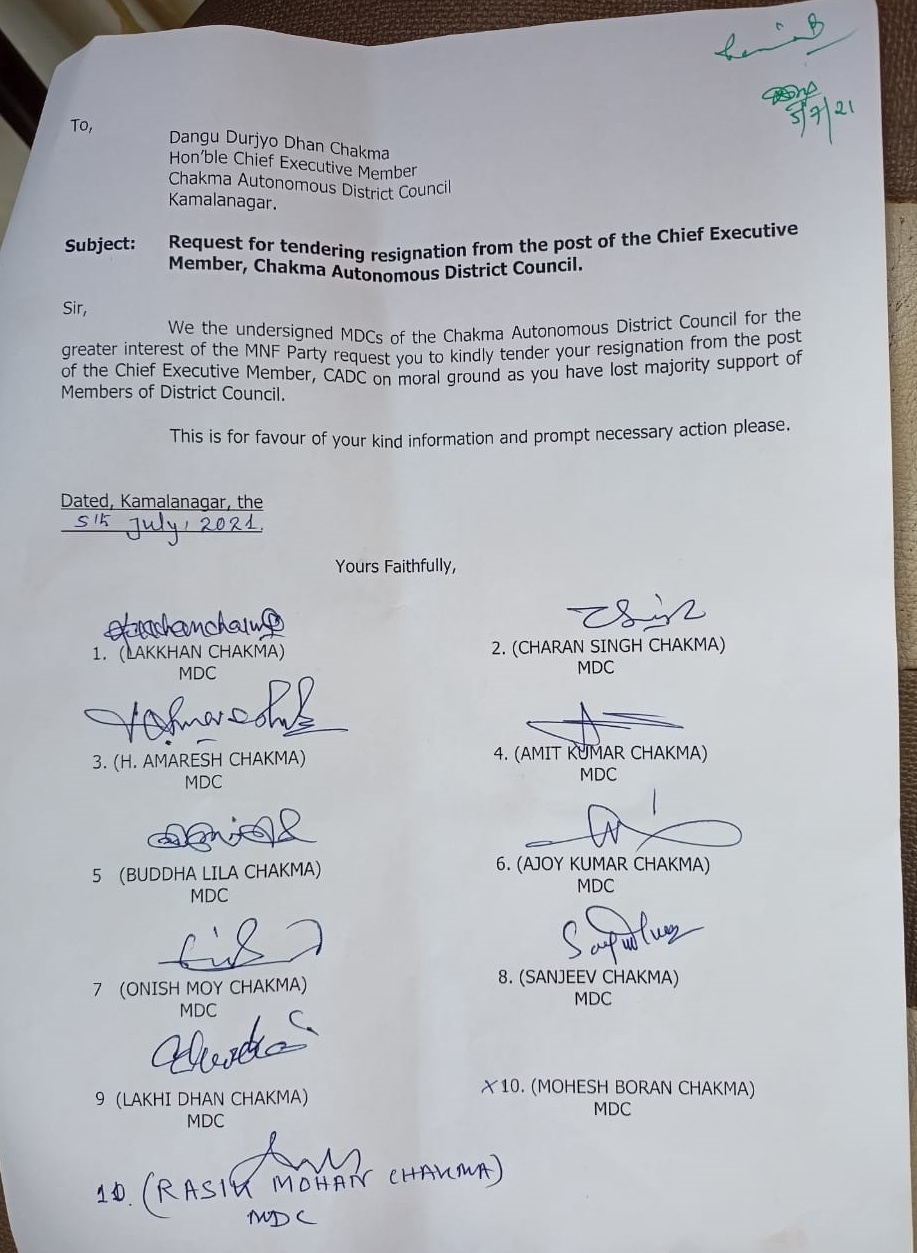 5/7/21
To,
Dangu Durjyo Dhan Chakma
Hon'ble Chief Executive Member
Chakma Autonomous District Council
Kamalanagar.
Subject: Request for tendering resignation from the post of the Chief Executive
Member, Chakma Autonomous District Council.
Sir,
We the undersigned MDCs of the Chakma Autonomous District Council for the
greater interest of the MNF Party request you to kindly tender your resignation from the post
of the Chief Executive Member, CADC on moral ground as you have lost majority support of
Members of District Council.
This is for favour of your kind information and prompt necessary action please.
Dated, Kamalanagar, the
5th July, 2021.
Yours Faithfully,
1. (LAKKHAN CHAKMA) 2. (CHARAN SINGH CHAKMA)
MDC MDC
3. (H. AMARESH CHAKMA) 4. (AMIT KUMAR CHAKMA)
MDC MDC
5 (BUDDHA LILA CHAKMA) 6. (AJOY KUMAR CHAKMA)
MDC MDC
7 (ONISH MOY CHAKMA) 8. (SANJEEV CHAKMA)
MDC MDC
9 (LAKHI DHAN CHAKMA) X 10. (MOHESH BORAN CHAKMA)
MDC MDC
10. (RASIK MOHAN CHAKMA)
MDC